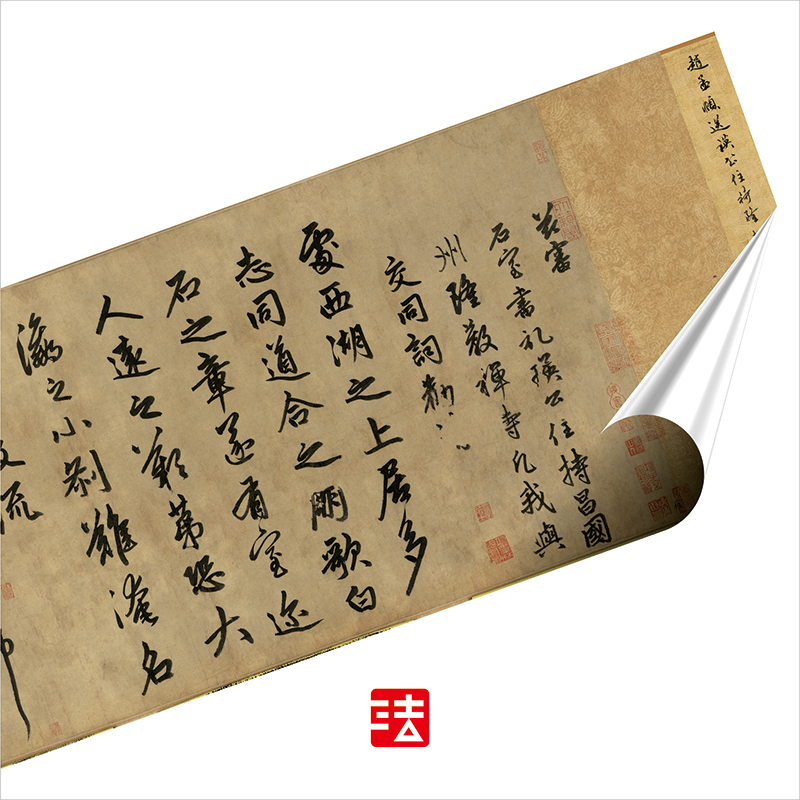 趙孟頫送瑛公住持隆
茲審
石室書記瑛公住持昌國
州隆教禪寺凡我與
交同詞勸
處西湖之上居多
志同道合之朋歌白
石之章遂有室迩
人遠之歎第恐大
瀛之小刹難淹名
流
法